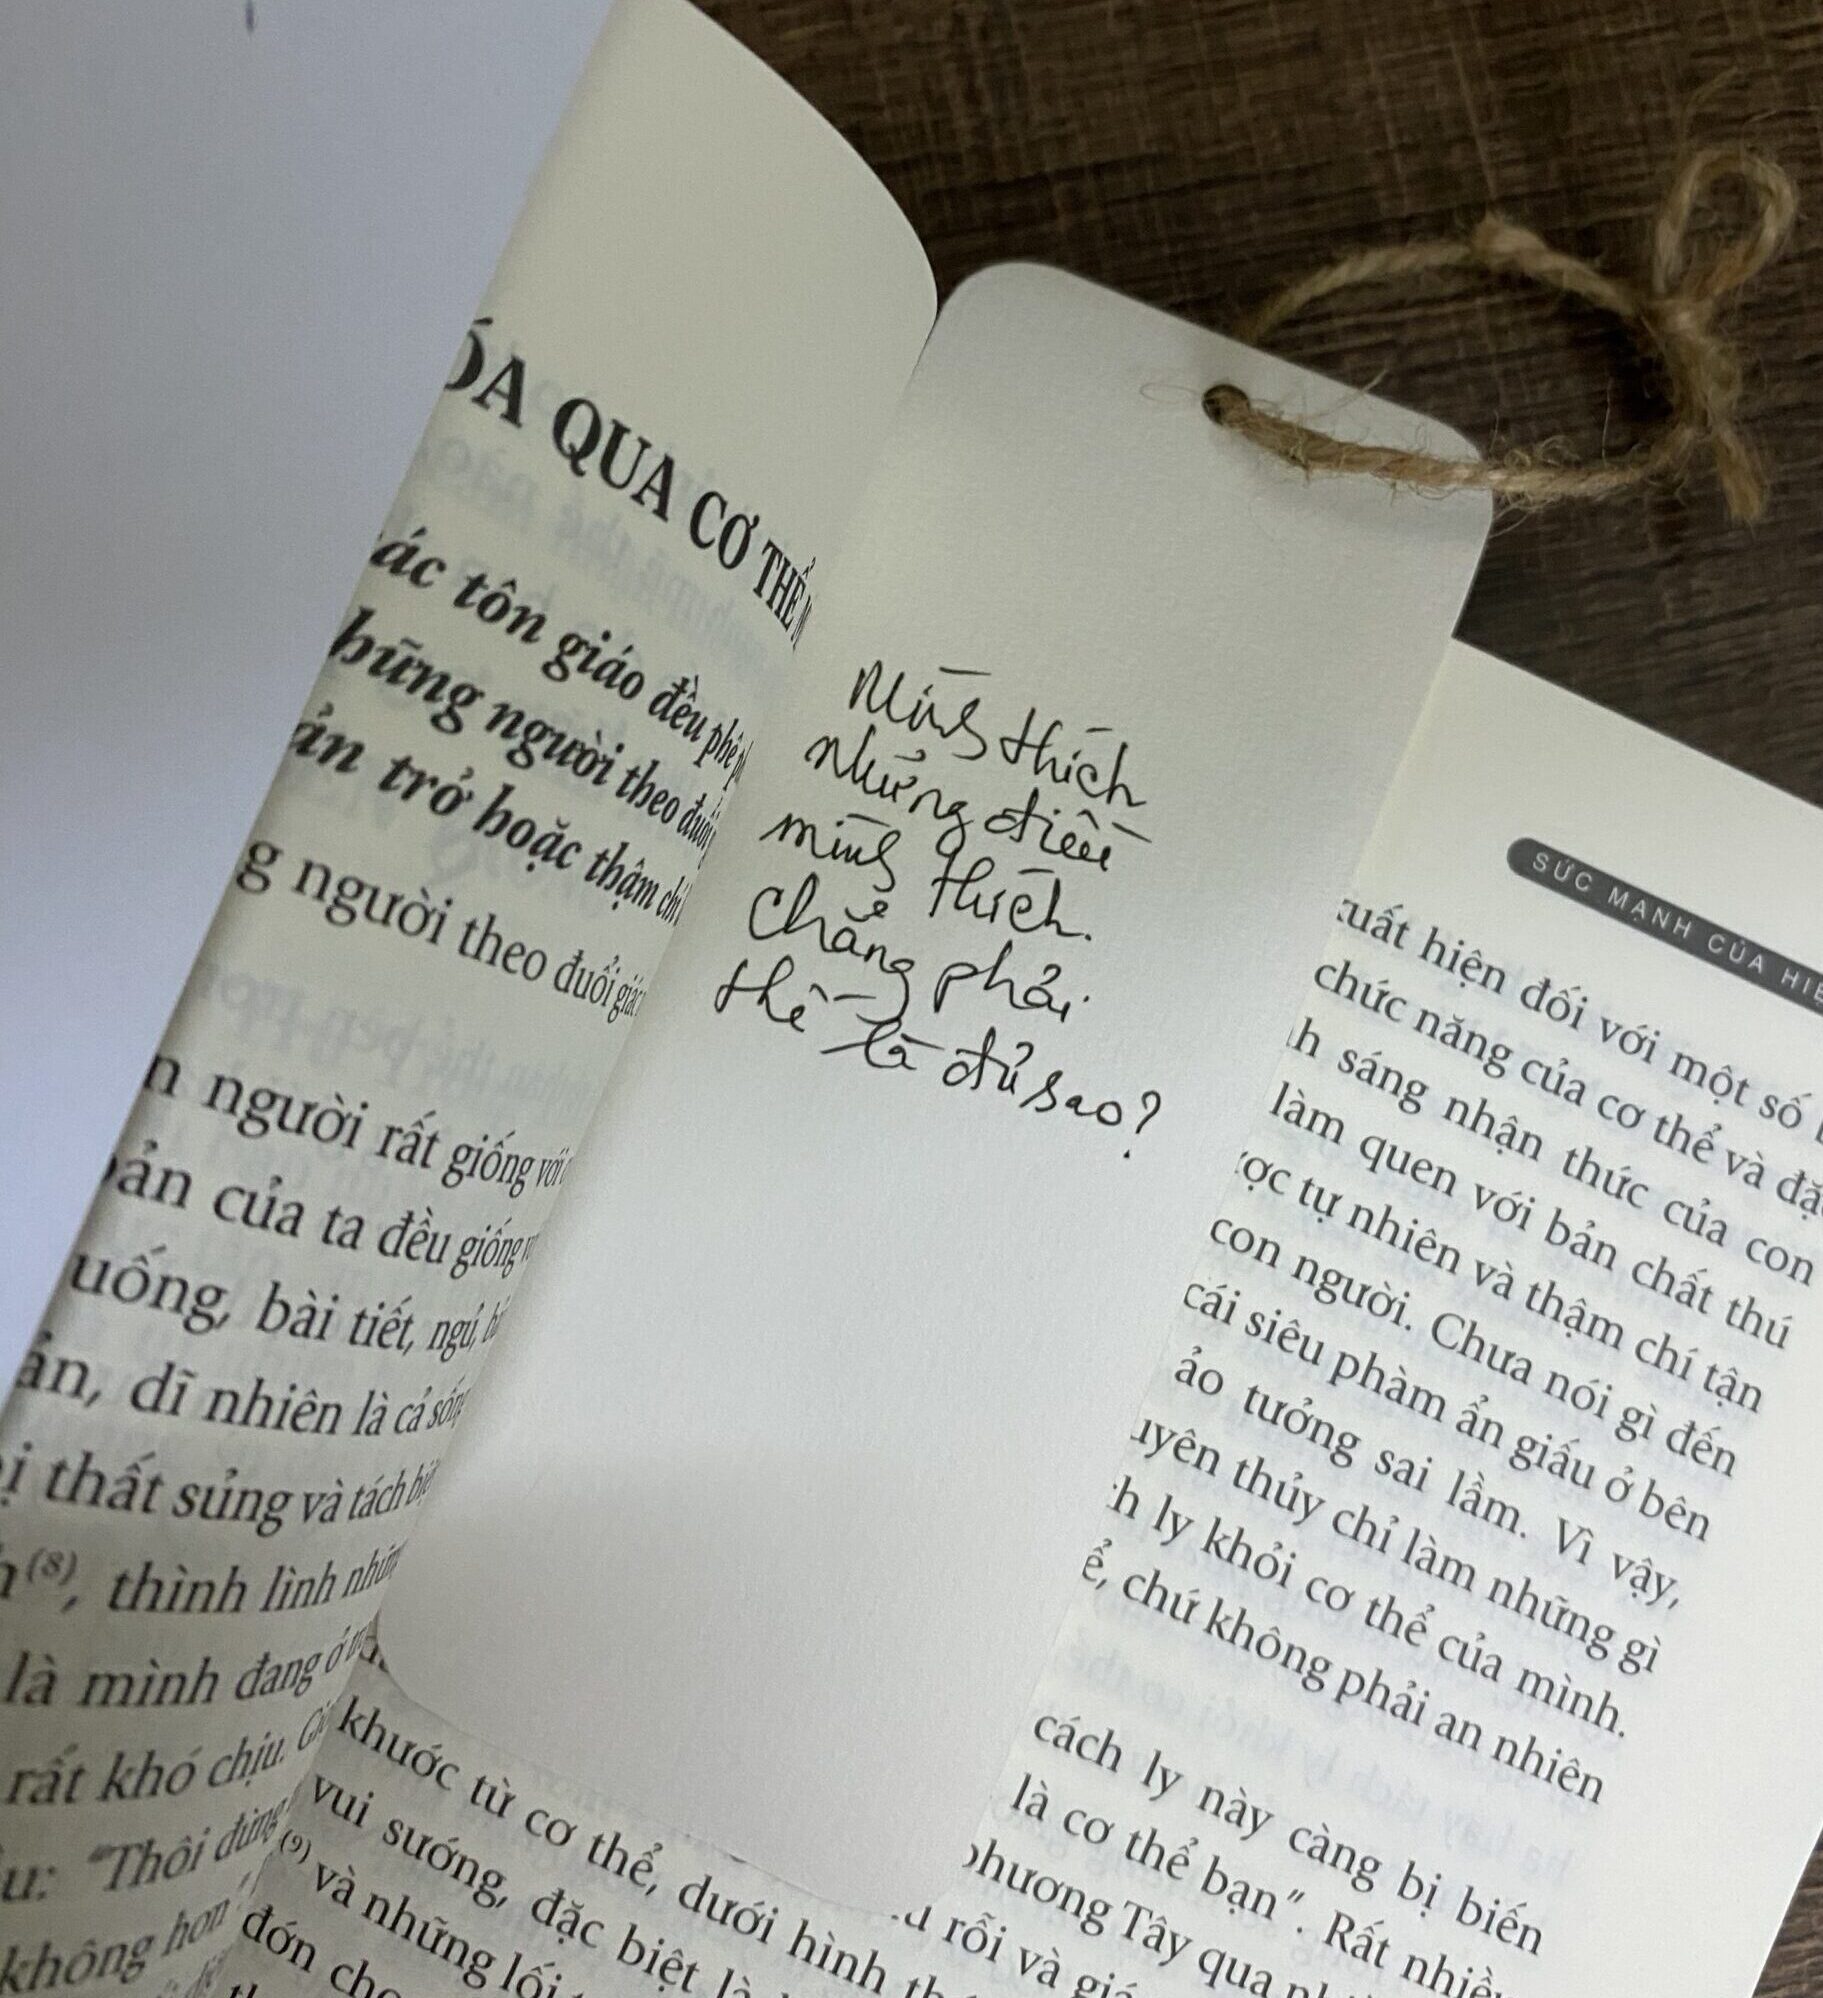 ÓA QUA CƠ THỂ
ác tôn giáo đều phê
hững người theo đuổi
ản trở hoặc thậm chí
g người theo đuổi giác
n người rất giống với
bản của ta đều giống
uống, bài tiết, ngủ,
ản, dĩ nhiên là cả sống
ị thất sủng và tách biệt
(8), thình lình những
là mình đang ở
rất khó chịu.
u: "Thôi đừng
không hơn
Mình thích
những điều
mình thích.
Chẳng phải
thế là đủ sao?
SỨC MẠNH CỦA HIỆ
xuất hiện đối với một số
chức năng của cơ thể và đặ
h sáng nhận thức của con
làm quen với bản chất thú
ợc tự nhiên và thậm chí tận
con người. Chưa nói gì đến
cái siêu phàm ẩn giấu ở bên
ảo tưởng sai lầm. Vì vậy,
uyên thủy chỉ làm những gì
h ly khỏi cơ thể của mình.
ể, chứ không phải an nhiên
cách ly này càng bị biến
là cơ thể bạn". Rất nhiều
phương Tây qua
rỗi và giá
khước từ cơ thể, dưới hình
vui sướng, đặc biệt là
(9) và những lối
đớn cho